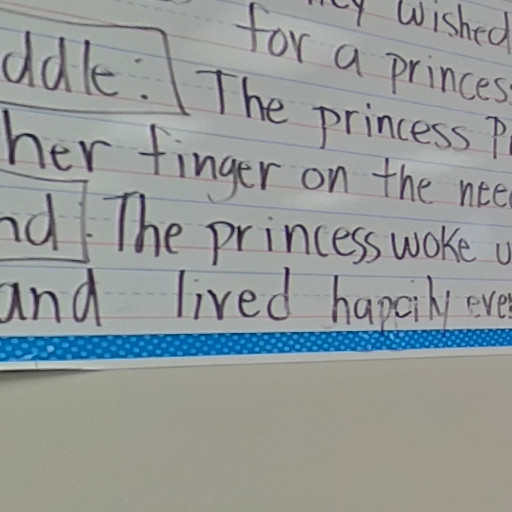 wished
for a princes
ddle: The princess
her finger on the nee
nd: The princess woke u
and lived happily eve